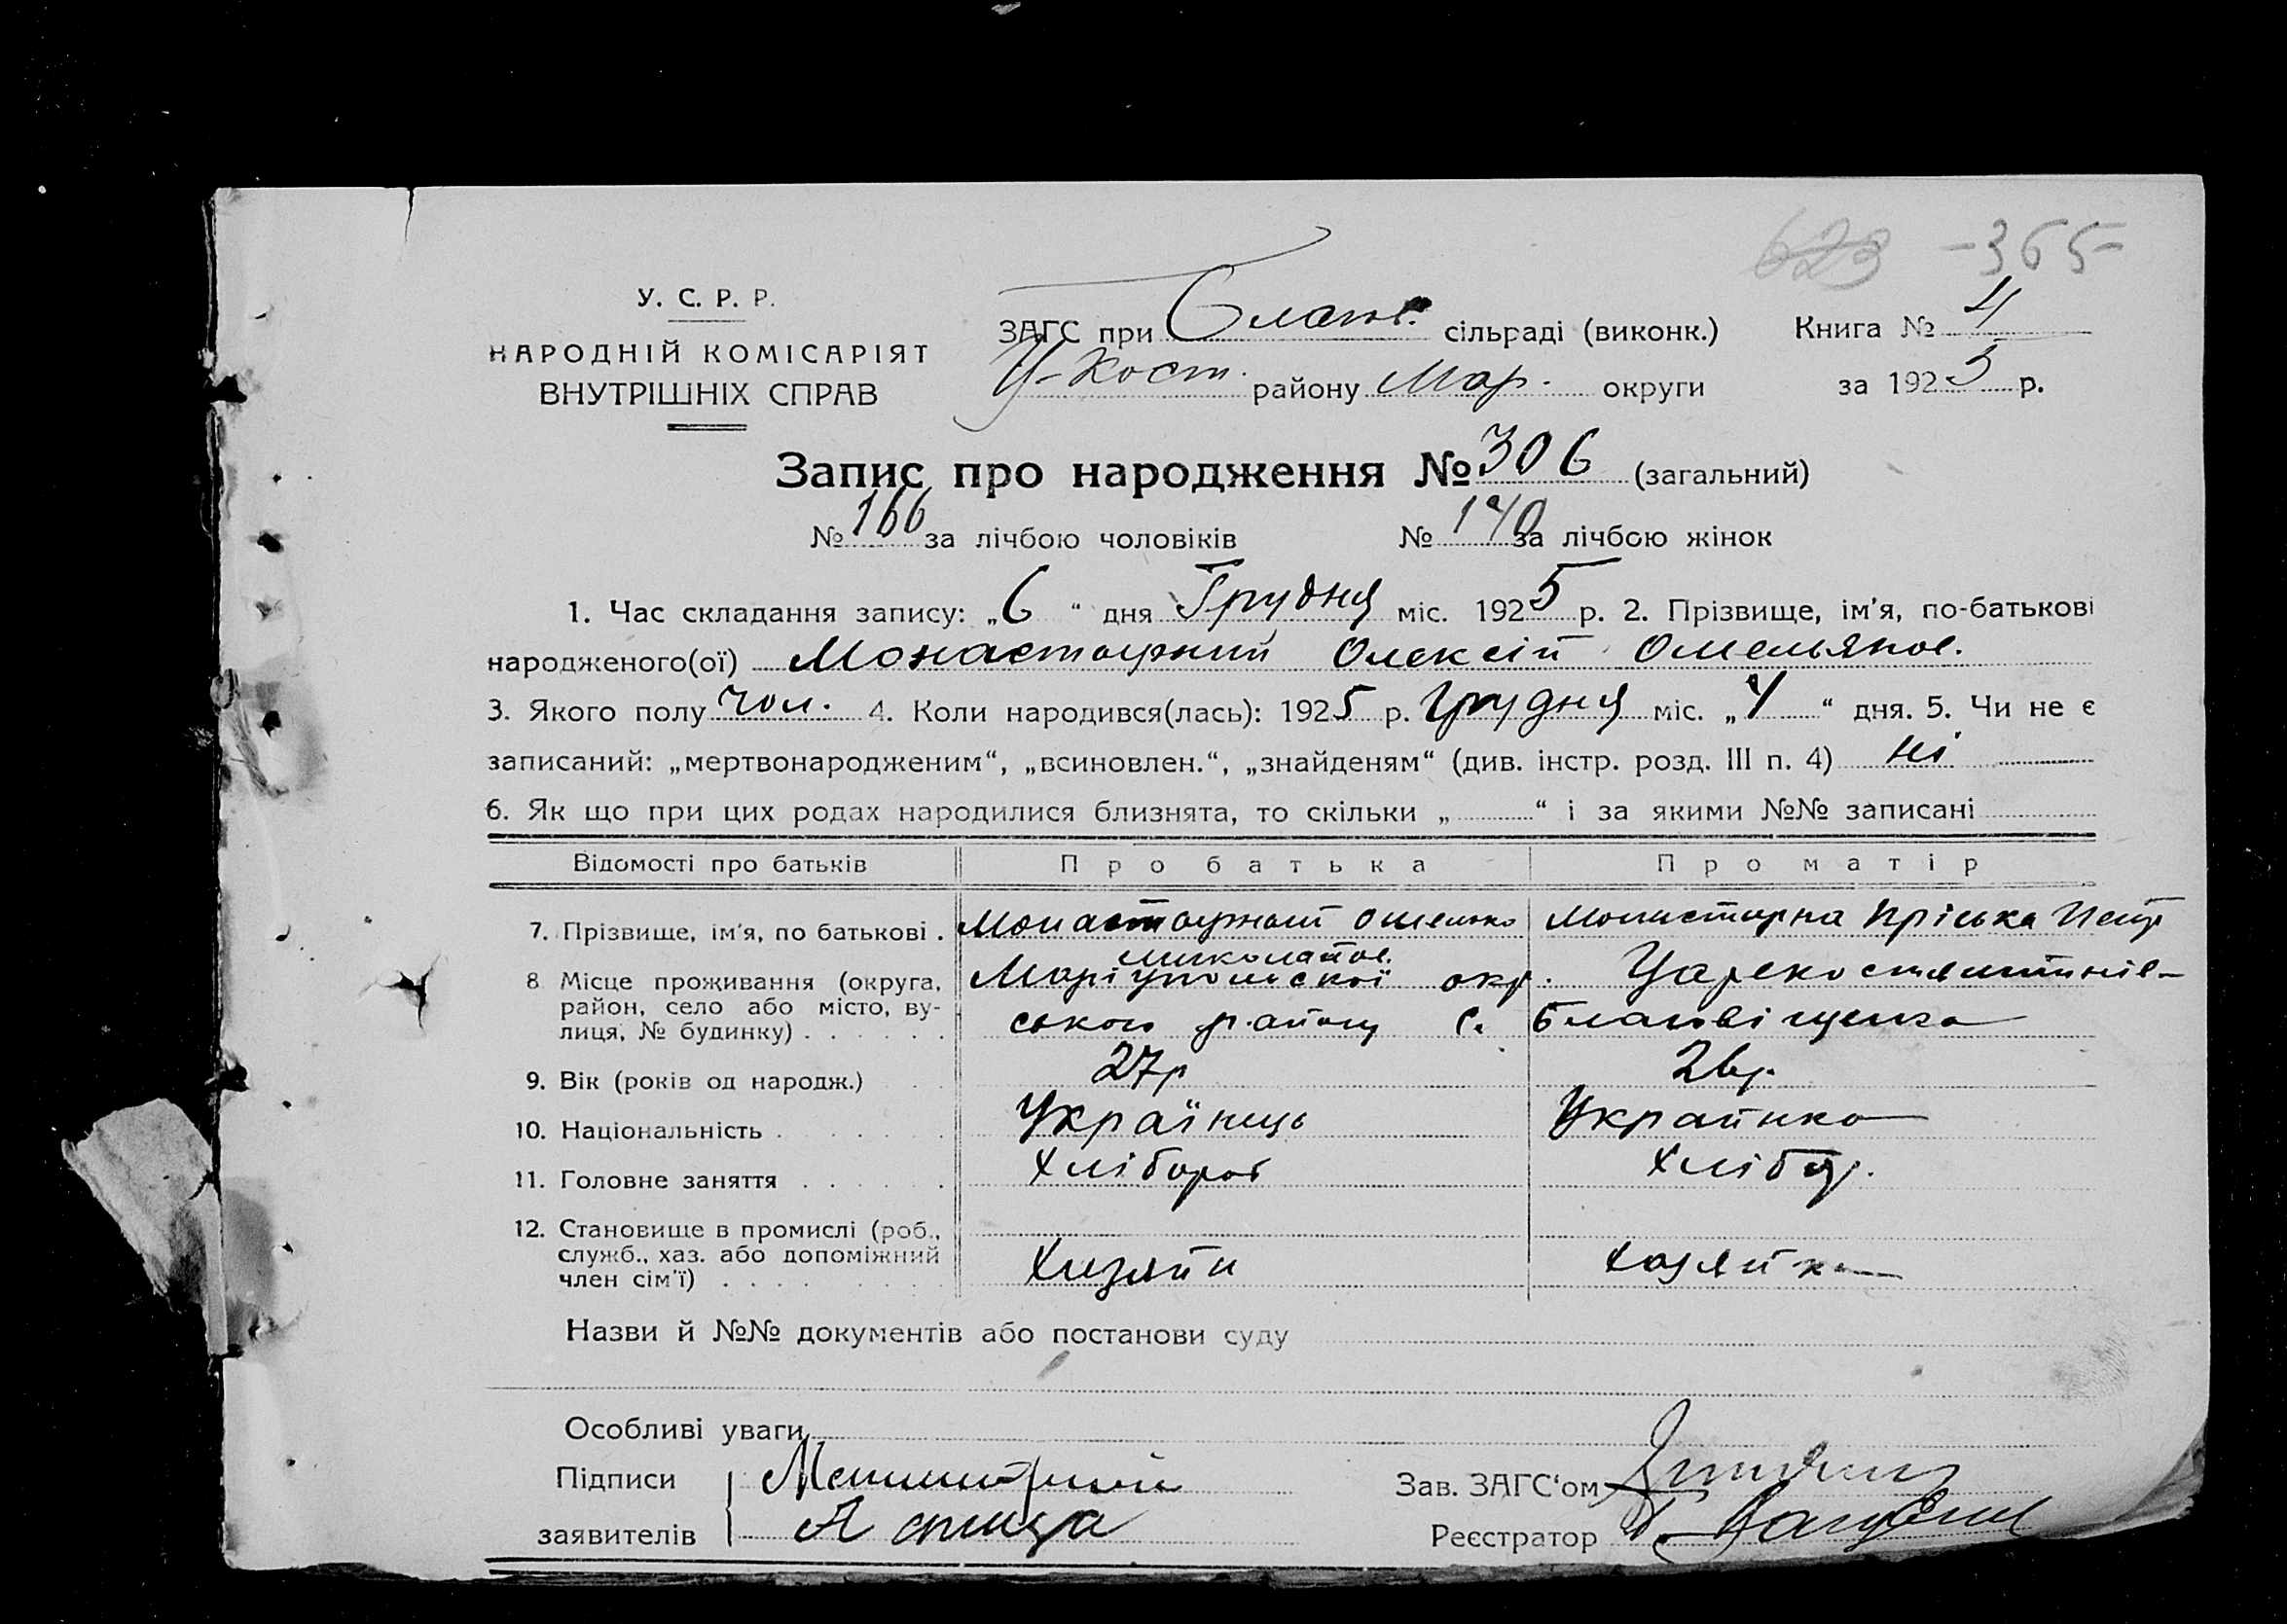 623 -365-
У. С. Р. Р.
НАРОДНІЙ КОМІСАРІЯТ
ВНУТРІШНІХ СПРАВ
ЗАГС при Благов. сільраді (виконк.) Книга № 4
Ц-Кост. району Мар. округи за 1925 р.
Запис про народження № 306 (загальний)
№ 166 за лічбою чоловіків № 140 за лічбою жінок
1. Час складання запису: „6“ дня Грудня міс. 1925 р. 2. Прізвище, ім’я, по-батькові
народженого(ої) Монастирний Олексій Омельянов.
3. Якого полу чол. 4. Коли народився(лась): 1925 р. Грудня міс. „4“ дня. 5. Чи не є
записаний: „мертвонародженим“, „всиновлен.“, „знайденям“ (див. інстр. розд. III п. 4) ні
6. Як що при цих родах народилися близнята, то скільки „ “ і за якими №№ записані
Відомості про батьків Про батька Про матір
7. Прізвище, ім’я, по батькові . Монастирний Омелько Миколайов. Монастирна Пріська Петр
8 Місце проживання (округа, район, село або місто, вулиця, № будинку) . . . . . . Маріупольскої окр. Царекостянтинів-
ського району с. Благовіщенка
9. Вік (років од народж.) 27р 26р.
10. Національність . Українець Украинка
11. Головне заняття . . . . . . Хлібороб Хлібор.
12. Становище в промислі (роб., служб., хаз. або допоміжний член сім’ї) . . . . Хазяйн Хазяйка
Назви й №№ документів або постанови суду
Особливі уваги
Підписи Монастирний Зав. ЗАГС‘ом
заявителів Реєстратор